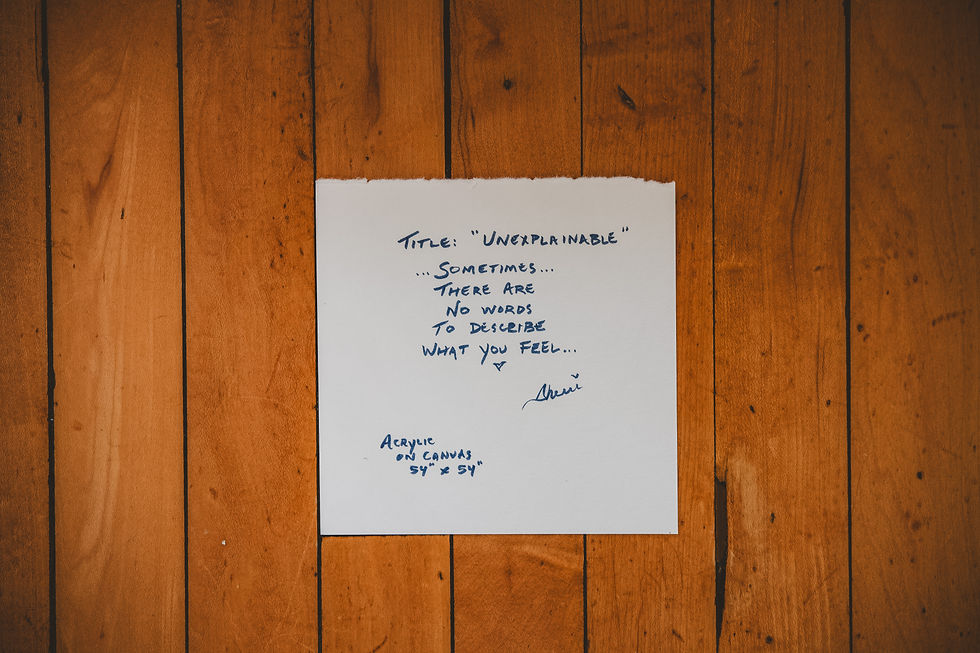 TITLE: "UNEXPLAINABLE"
...SOMETIMES...
THERE ARE
NO WORDS
TO DESCRIBE
WHAT YOU FEEL...
ACRYLIC
ON CANVAS
54" x 54"